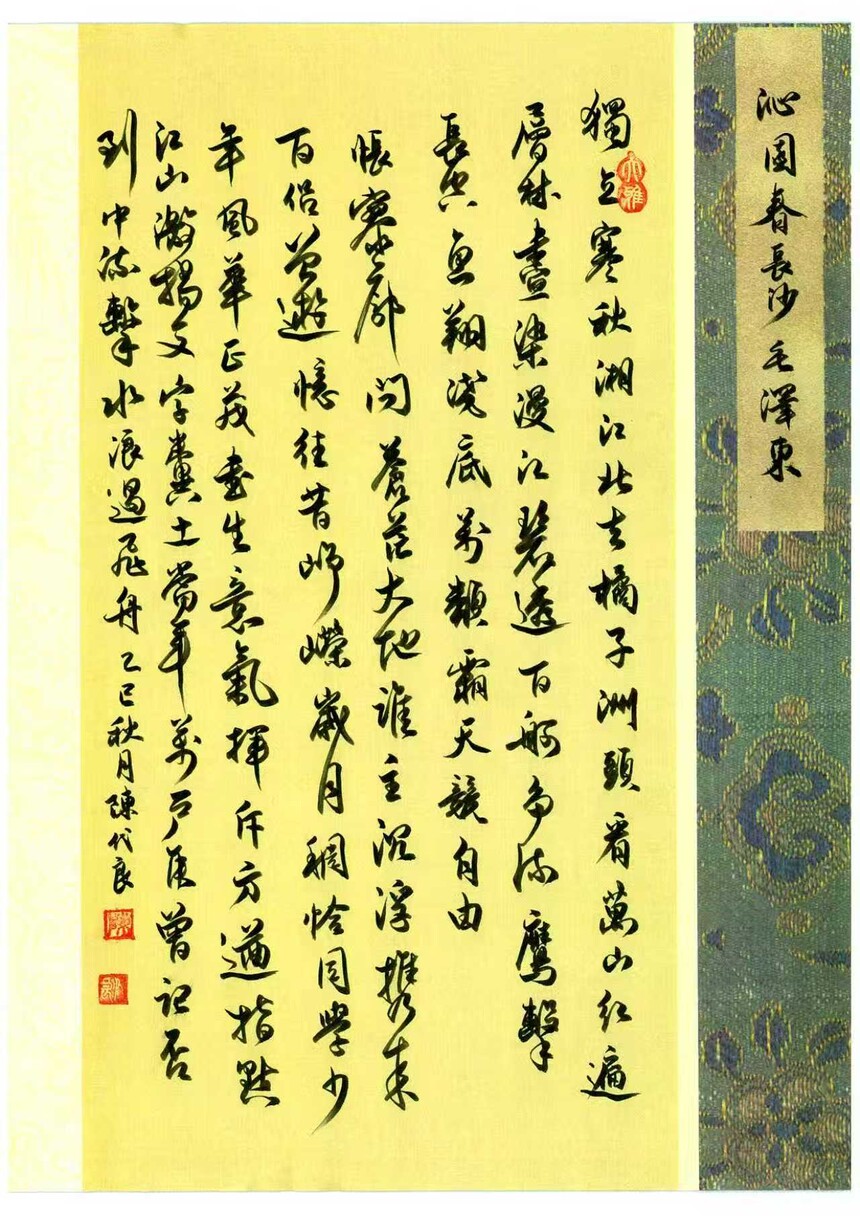 沁園春長沙毛澤東
獨立寒秋湘江北去橘子洲頭看萬山紅遍
層林盡染漫江碧透百舸爭流鷹擊
長空魚翔淺底萬類霜天競自由
悵寥廓問蒼茫大地誰主沉浮攜來
百侶曾遊憶往昔崢嶸歲月稠恰同學少
年風華正茂書生意氣揮斥方遒指點
江山激揚文字糞土當年萬戶侯曾記否
到中流擊水浪遏飛舟 乙巳秋月陳代良
大雅